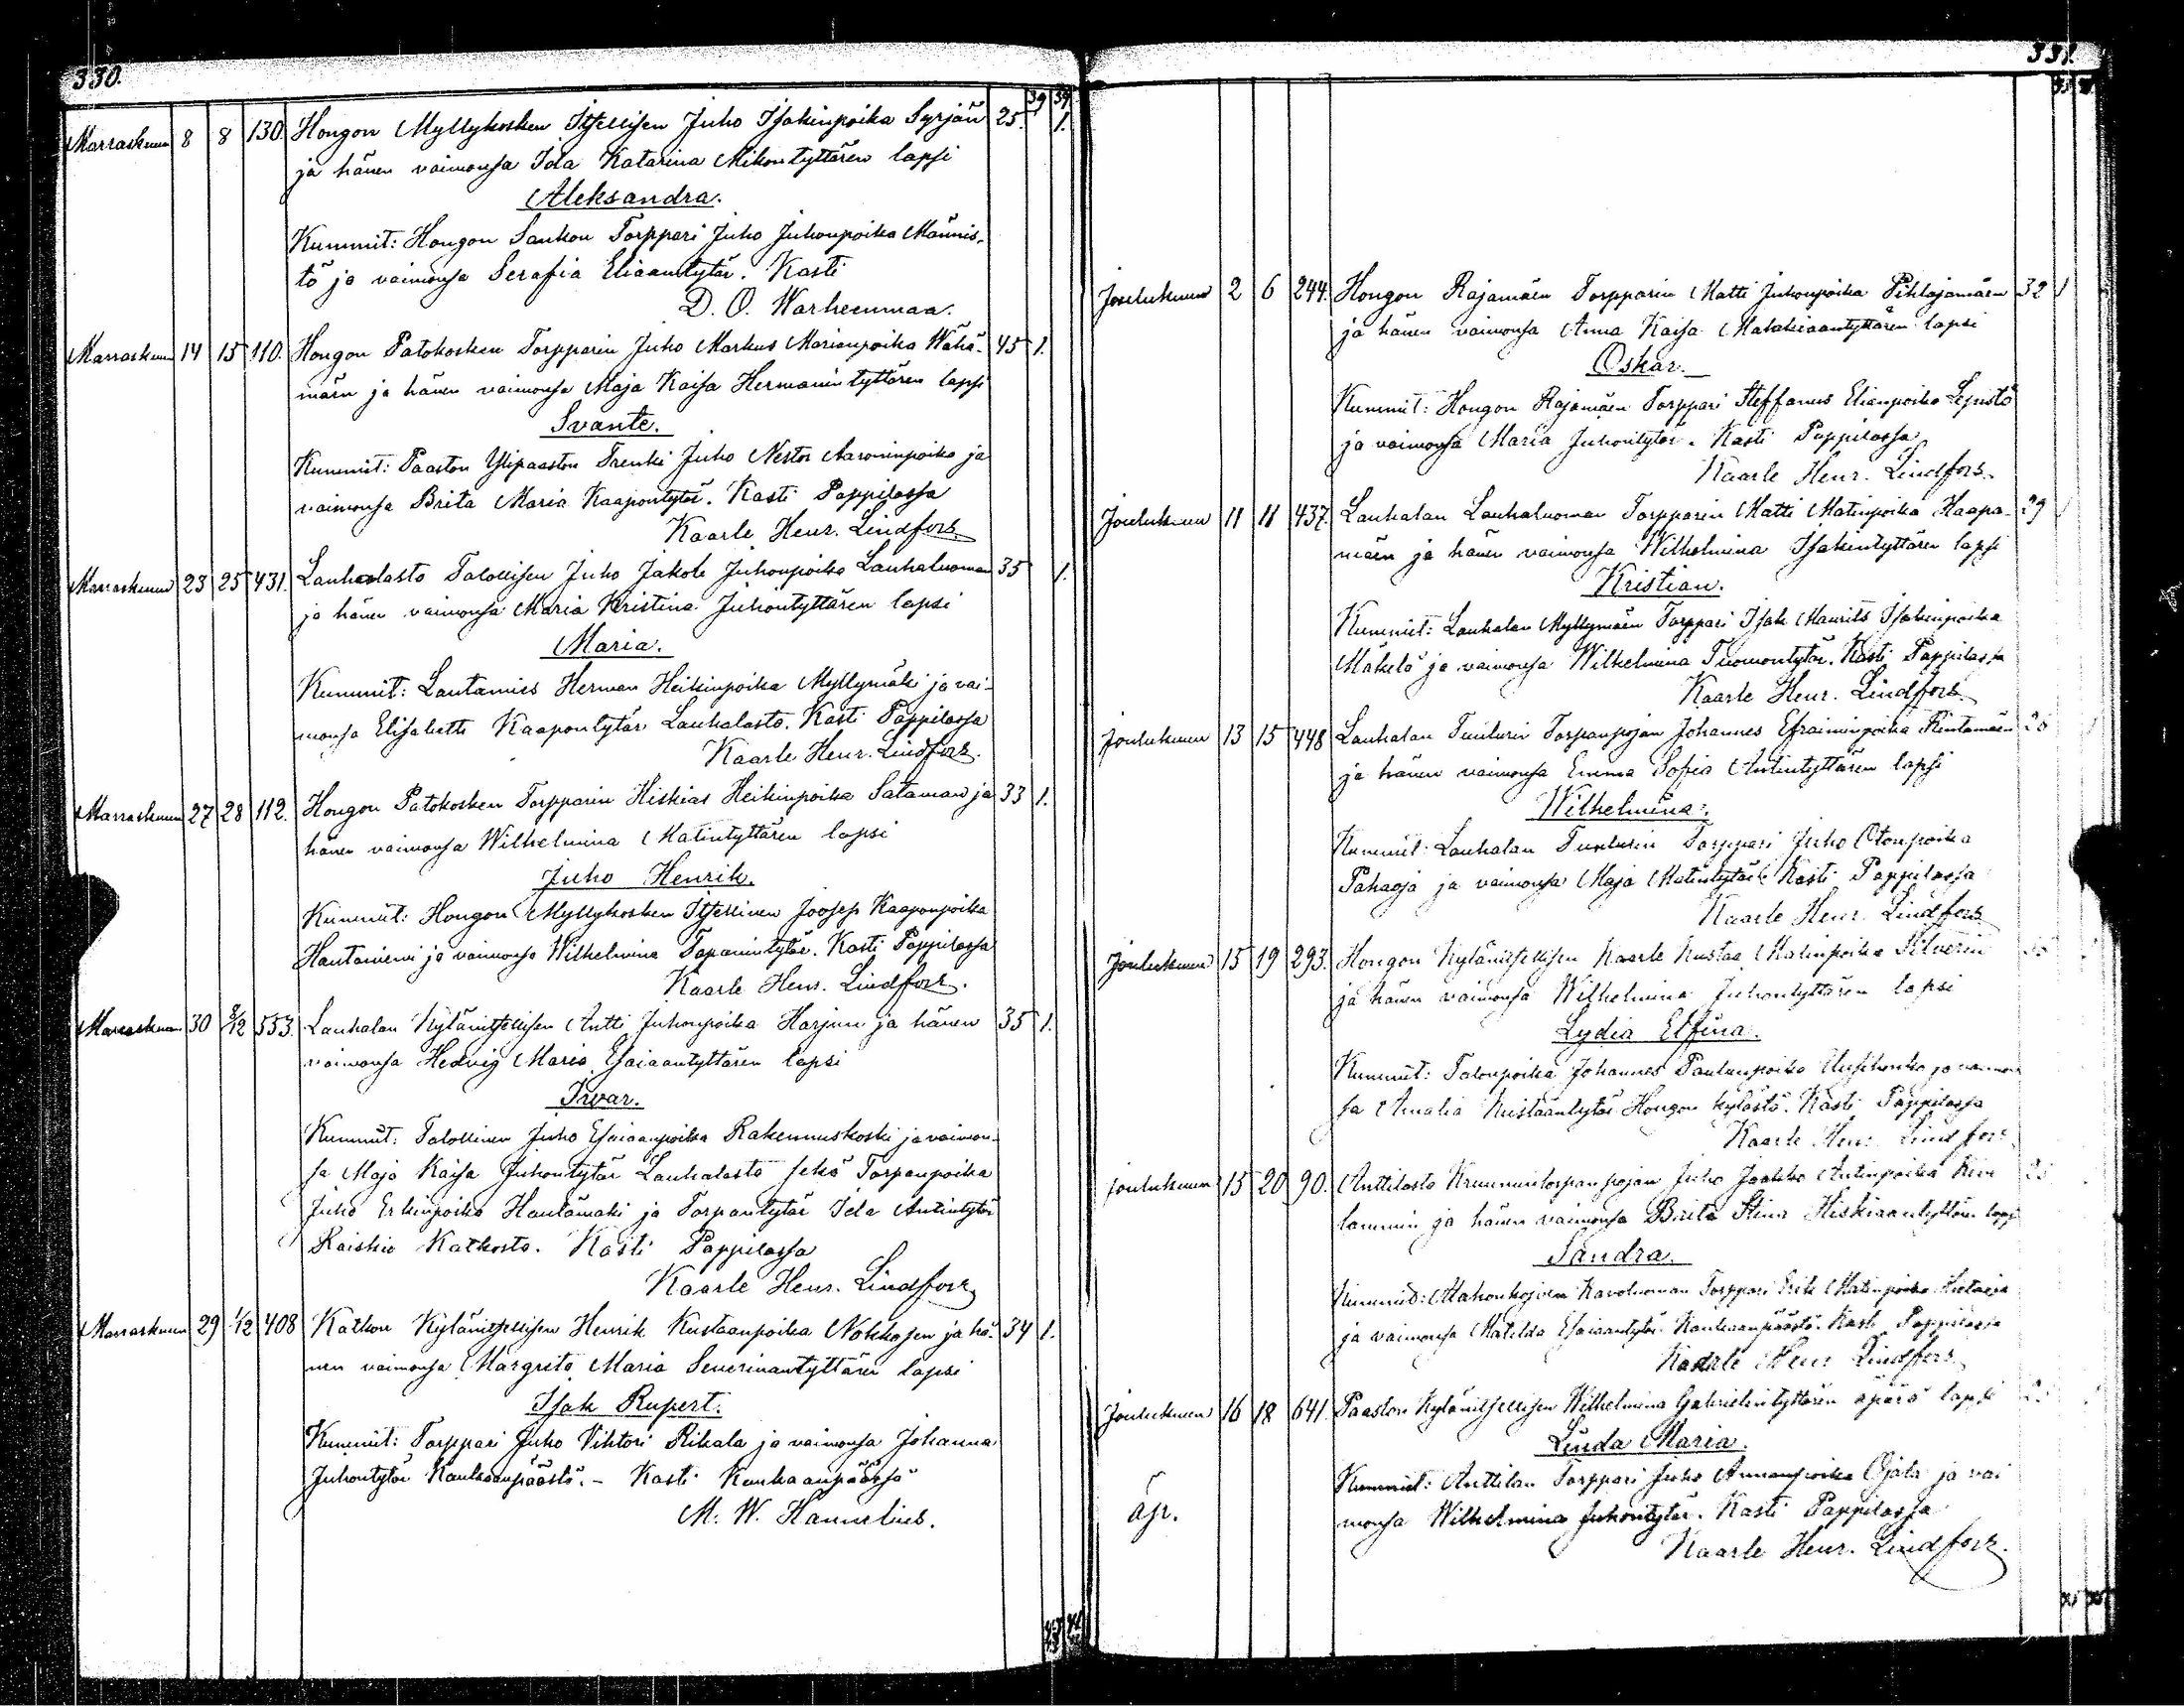 330.
39 39
Marraskuun 8 8 130. Hongon Myllykosken Itsellisen Juho Isakinpoika Syrjän 25. 1.
ja hänen vaimonsa Ida Katarina Mikontyttären lapsi
Aleksandra.
Kummit: Hongon Sankon Torppari Juho Juhonpoika Männis-
tö ja vaimonsa Serafia Eliaantytär. Kasti
D. O. Warheenmaa.
Marraskuun 14 15 110. Hongon Patokosken Torpparin Juho Markus Marianpoika Wähä- 45 1.
mäen ja hänen vaimonsa Maja Kaisa Hermanintyttären lapsi
Svante.
Kummit: Paaston Ylipaaston Trenki Juho Nestor Aaroninpoika ja
vaimonsa Brita Maria Kaapontytär. Kasti Pappilassa
Kaarle Henr. Lindfors.
Marraskuun 23 25 431. Lauhalasta Talollisen Juho Jakob Juhonpoika Lauhaluoman 35 1.
ja hänen vaimonsa Maria Kristina Juhontyttären lapsi
Maria.
Kummit: Lautamies Herman Heikinpoika Myllymäki ja vai-
monsa Elisabetti Kaapontytär Lauhalasta. Kasti Pappilassa
Kaarle Henr. Lindfors.
Marraskuun 27 28 112. Hongon Patokosken Torpparin Hiskias Heikinpoika Sataman ja 33 1.
hänen vaimonsa Wilhelmina Matintyttären lapsi
Juho Henrik.
Kummit: Hongon Myllykosken Itsellinen Joosep Kaaponpoika
Hautaniemi ja vaimonsa Wilhelmina Tapanintytär. Kasti Pappilassa
Kaarle Henr. Lindfors.
Marraskuun 30 3/12 553. Lauhalan Kylänitsellisen Antti Juhonpoika Harjun ja hänen 35 1.
vaimonsa Hedvig Maria Esaiaantyttären lapsi
Irvar.
Kummit: Talollinen Juho Esaiaanpoika Rakennuskoski ja vaimon-
sa Maja Kaisa Juhontytär Lauhalasta sekä Torpanpoika
Juho Erkinpoika Hautamäki ja Torpantytär Ida Antintytär
Raiskio Katkosta. Kasti Pappilassa
Kaarle Henr. Lindfors
Marraskuun 29 1/12 408 Katkon Kylänitsellisen Henrik Kustaanpoika Nokkosen ja hä- 34 1.
nen vaimonsa Margreta Maria Severinantyttären lapsi
Isak Rupert.
Kummit: Torppari Juho Vihtori Rikala ja vaimonsa Johanna
Juhontytär Kauhaanpäästä. - Kasti Kauhaanpäässä
M. W. Hannelius.
331.
Joulukuun 2 6 244. Hongon Rajamäen Torpparin Matti Juhonpoika Pihlajamäen 32 1
ja hänen vaimonsa Anna Kaisa Malakiaantyttären lapsi
Oskar.
Kummit: Hongon Rajamäen Torppari Steffanus Elianpoika Lepistö
ja vaimonsa Maria Juhontytär. Kasti Pappilassa
Kaarle Henr. Lindfors.
Joulukuun 11 11 437. Lauhalan Lauhaluoman Torpparin Matti Matinpoika Haapa- 29 1
mäen ja hänen vaimonsa Wilhelmina Isakintyttären lapsi
Kristian.
Kummit: Lauhalan Myllymäen Torppari Isak Maurits Isakinpoika
Mäkelä ja vaimonsa Wilhelmina Tuomontytär. Kasti Pappilassa
Kaarle Henr. Lindfors
Joulukuun 13 15 448 Lauhalan Tuulurin Torpanpojan Johannes Efraiminpoika Rintamäen
ja hänen vaimonsa Emma Sofia Antintyttären lapsi
Wilhelmina.
Kummit: Lauhalan Tuulurin Torppari Juho Otonpoika
Pahaoja ja vaimonsa Maja Matintytär. Kasti Pappilassa
Kaarle Henr. Lindfors
Joulukuun 15 19 293. Hongon Kylänitsellisen Kaarle Kustaa Matinpoika Silverin
ja hänen vaimonsa Wilhelmina Juhontyttären lapsi
Lydia Elfina.
Kummit: Talonpoika Johannes Paulunpoika ja vaimon
sa Amalia Kustaantytär Hongon kylästä. Kasti Pappilassa
Kaarle Henr. Lindfors
Joulukuun 15 20 90. Anttilasta Kruununtorpanpojan Juho Jaakko Antinpoika Kive
lammin ja hänen vaimonsa Brita Stina Hiskiaantyttären lapsi
Sandra.
Kummit: Torppari Erik Matinpoika
ja vaimonsa Matilda Esaiaantytär Kauhaanpäästä. Kasti Pappilassa
Kaarle Henr. Lindfors
Joulukuun 16 18 641. Paaston Kylänitsellisen Wilhelmina Gabrielintyttären äpärä lapsi
Linda Maria.
Kummit: Anttilan Torppari Juho Annanpoika Ojala ja vai
äp. monsa Wilhelmina Juhontytär. Kasti Pappilassa
Kaarle Henr. Lindfors.